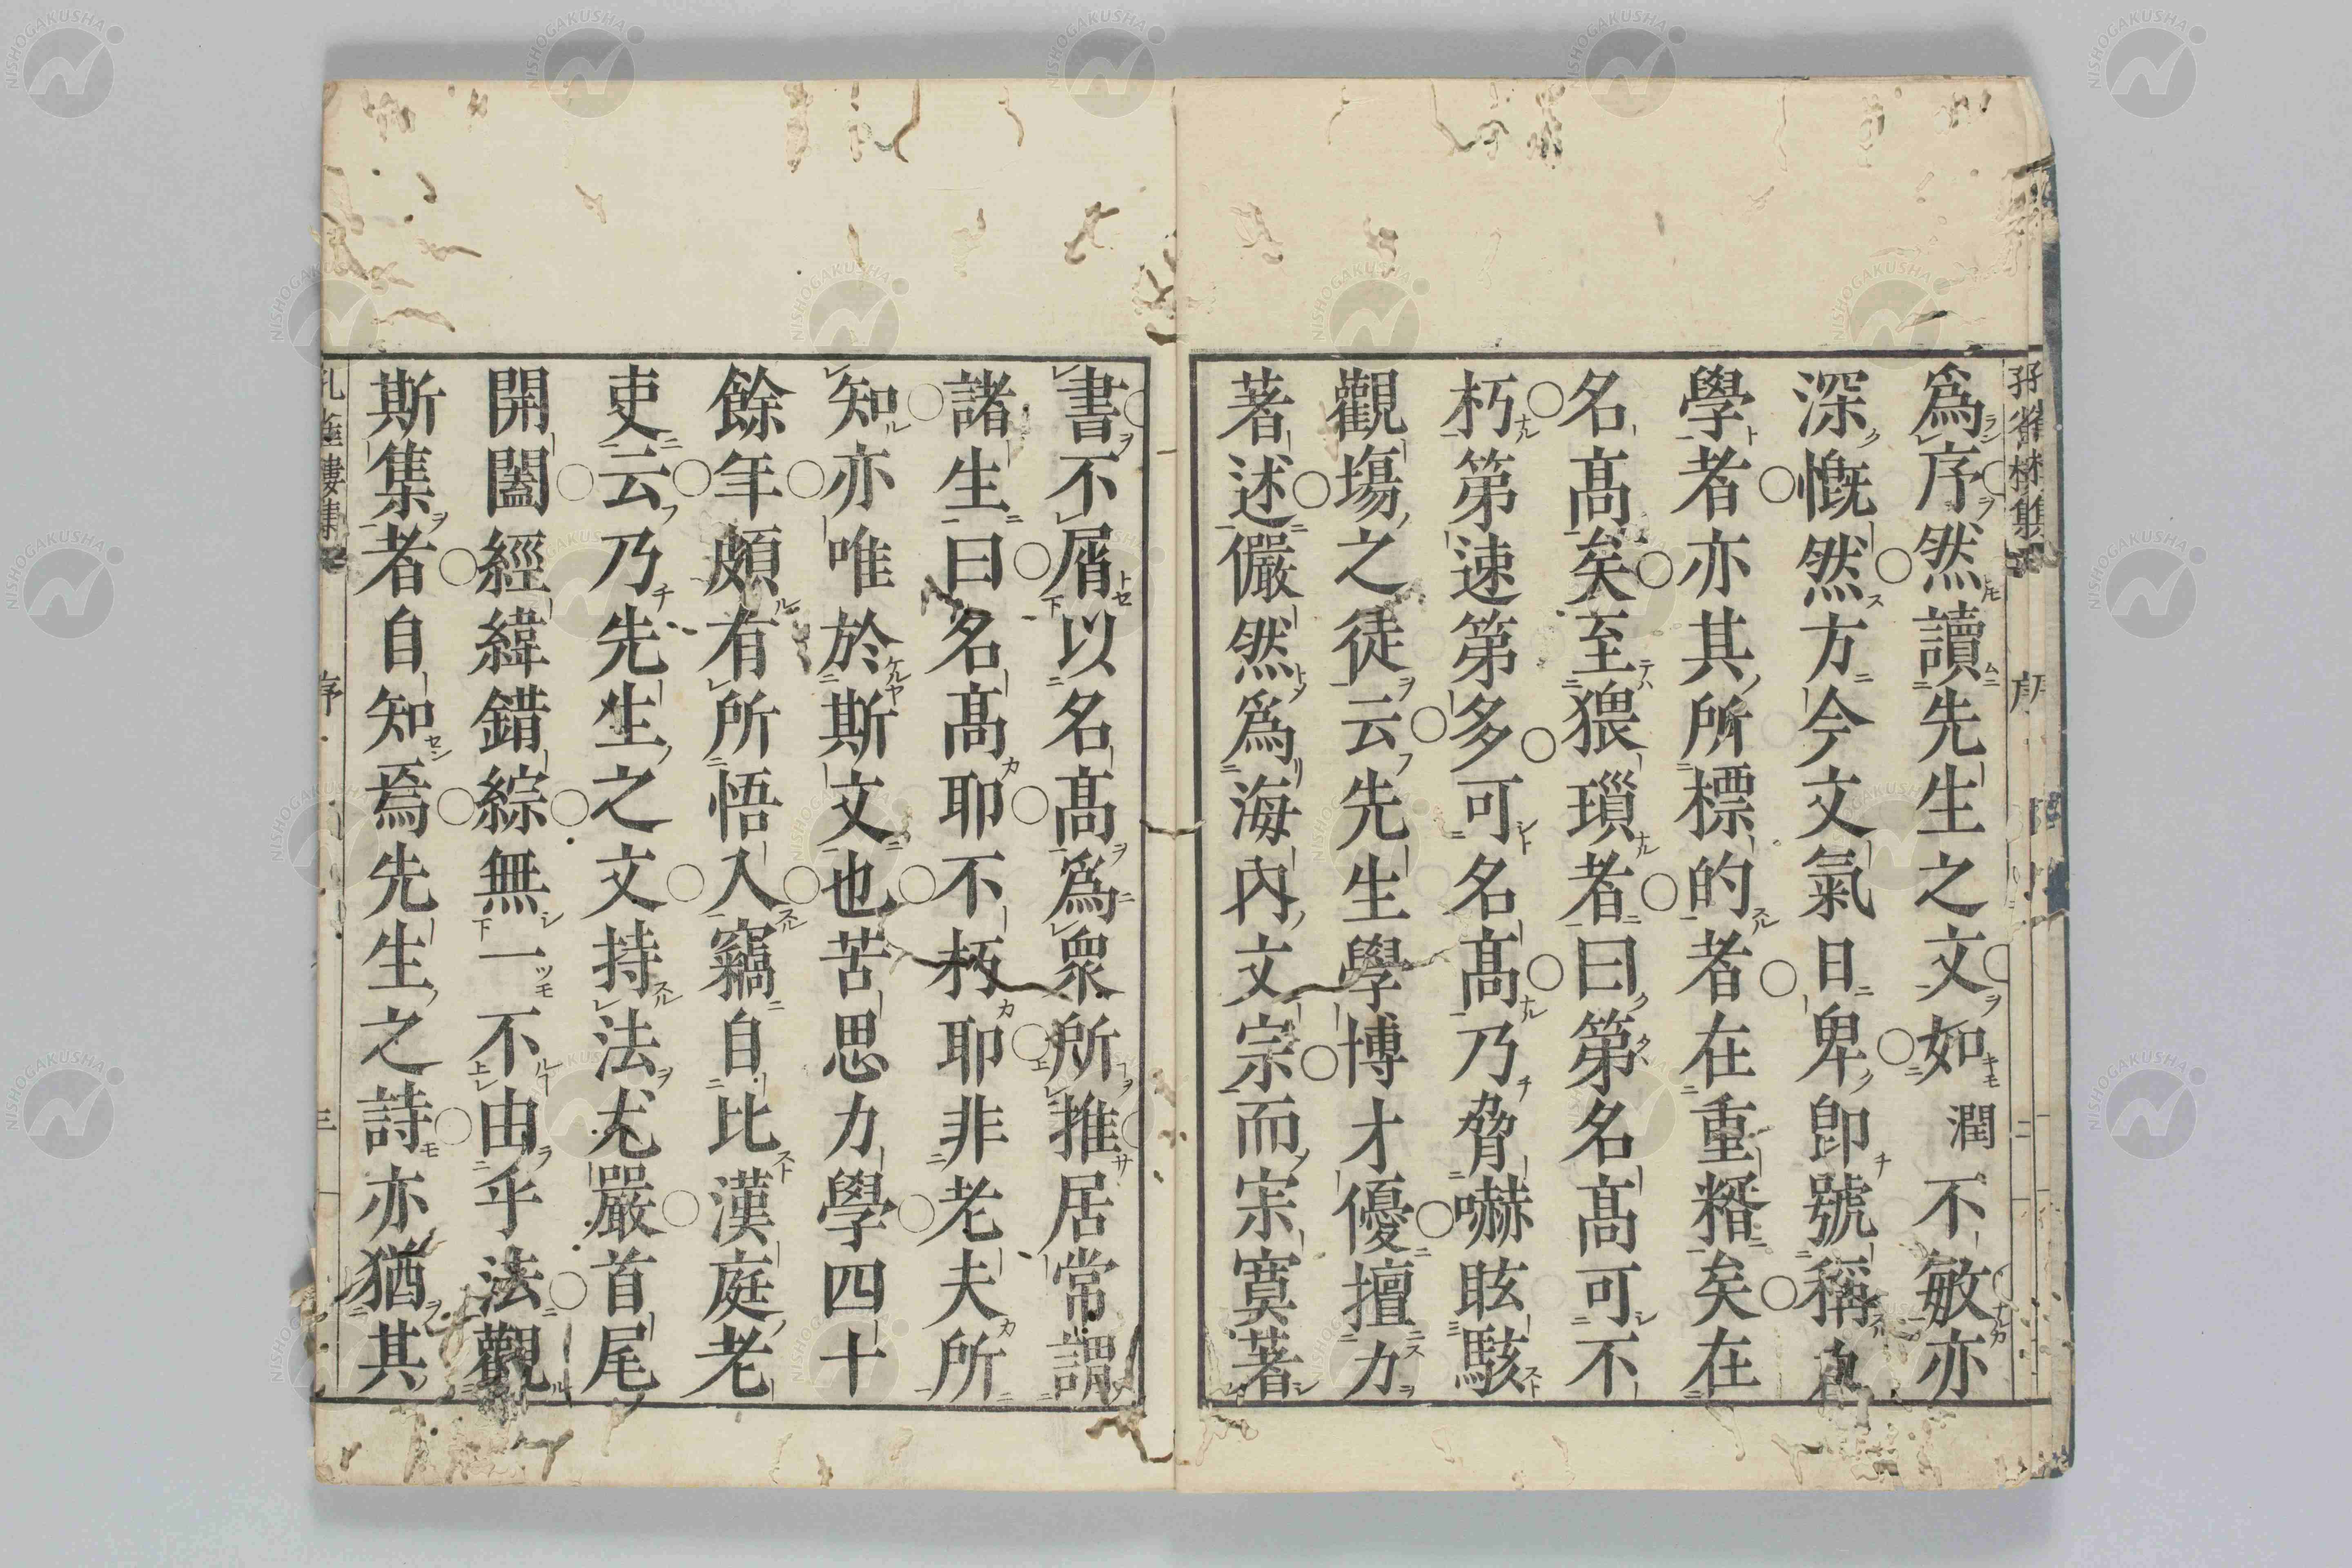 爲序然讀先生之文如潤不敏亦
深慨然方今文氣日卑卽號稱
學者亦其所標的者在重糈矣在
名高矣至猥瑣者曰第名高可不
朽第速第多可名高乃脅嚇眩駭
觀場之徒云先生學博才優擅力
著述儼然爲海內文宗而宗寞著
書不屑以名高爲衆所推居常謂
諸生曰名高耶不朽耶非老夫所
知亦唯於斯文也苦思力學四十
餘年頗有所悟入竊自比漢庭老
吏云乃先生之文持法尤嚴首尾
開闔經緯錯綜無一不由乎法觀
斯集者自知焉先生之詩亦猶其
序
二
孔雀樓集
序
三
NISHOGAKUSHA